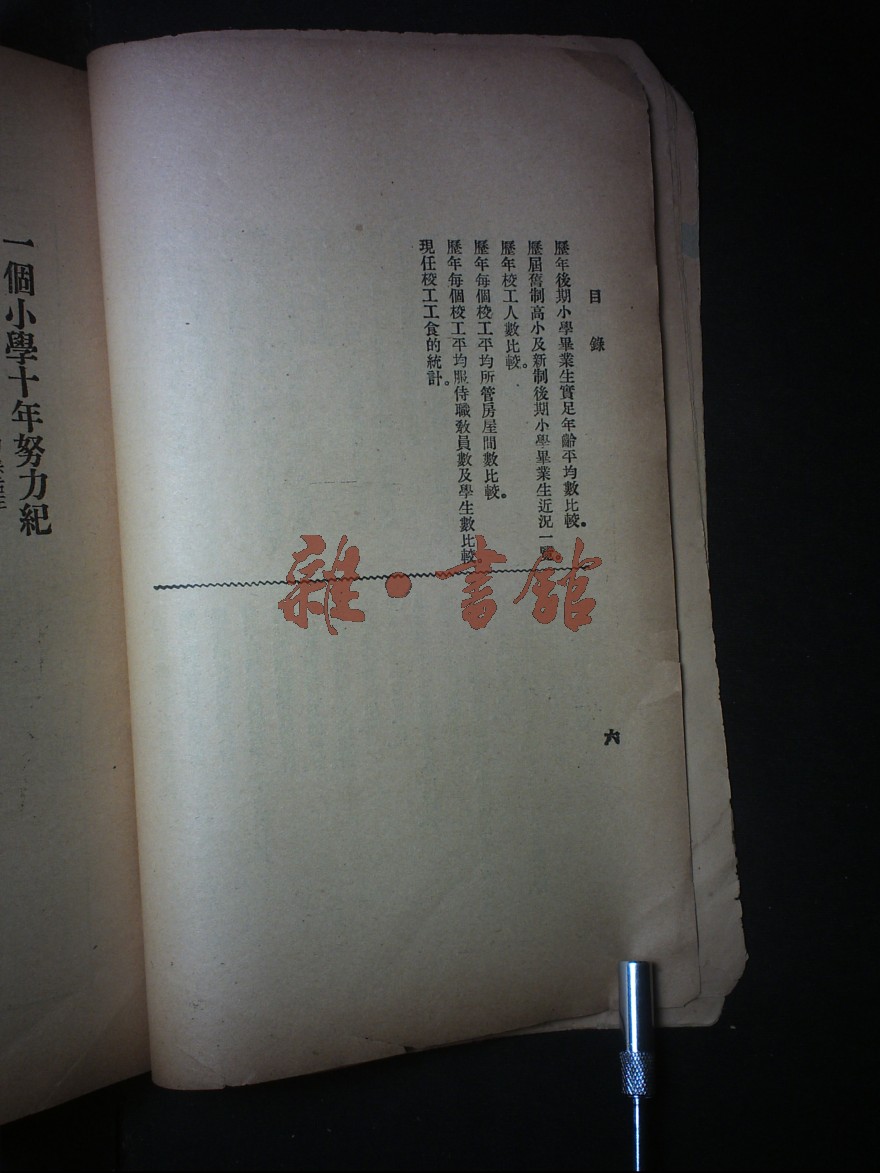 目錄
歷年後期小學畢業生實足年齡平均數比較。
歷屆舊制高小及新制後期小學畢業生近況一覽。
歷年校工人數比較。
歷年每個校工平均所管房屋間數比較。
歷年每個校工平均服侍職敎員數及學生數比較。
現任校工工食的統計。
六
雜·書館
一個小學十年努力紀